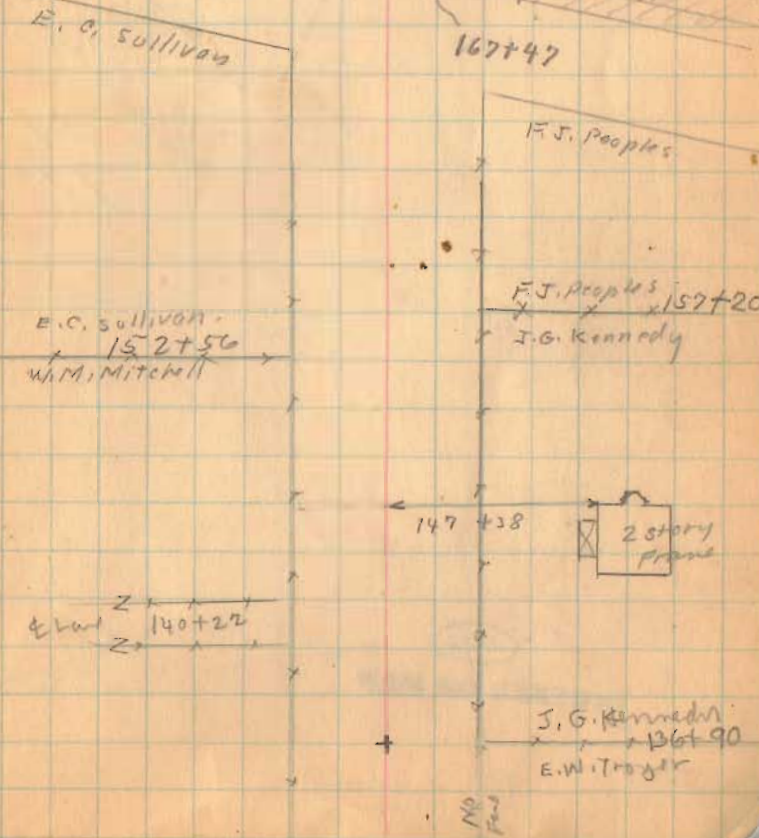 E. C. Sullivan
167+47
F.J. Peoples
F.J. Peoples
157+20
J.G. Kennedy
E.C. Sullivan.
152+56
W.M. Mitchell
147+38
2 Story
Frame
140+22
J. G. Kennedy
136+90
E.W. Troyer
No